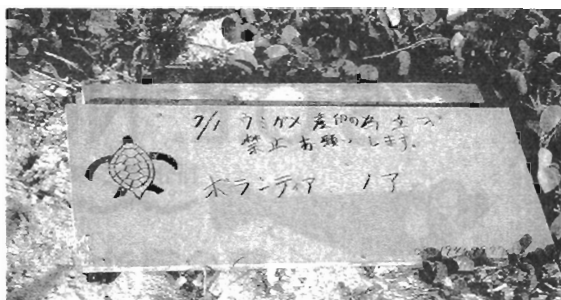 7/1 ウミガメ産卵の為立
禁止お願いします。
ボランティア ノア